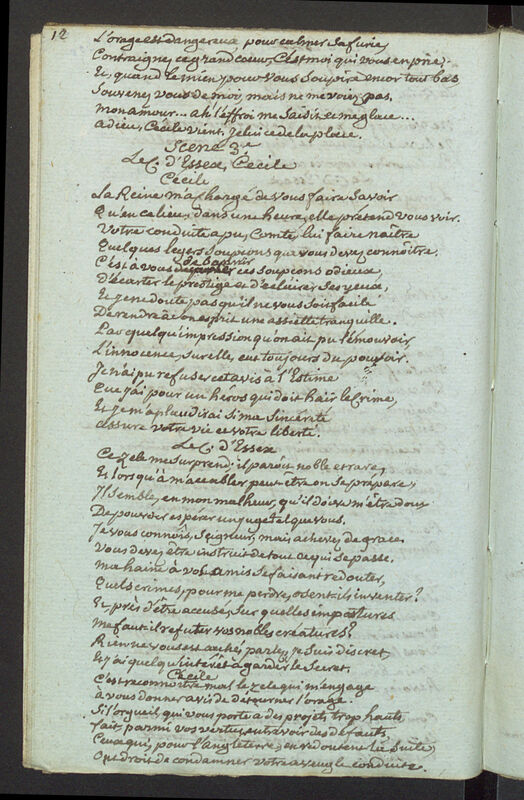 12
L'orage est dangereux pour calmer sa furie,
Contraignez ce grand coeur, C'est moi qui vous en prie,
Et, quand le mien pour vous soupire encor tout bas
Souvenez vous de moi, mais ne me voiez pas.
Mon amour... ah! l'effroi me saisit et me glace...
adieu, Cecile vient, Je lui cede la place.
Scene 3e
Le C. d'Essex, Cecile
Cecile
La Reine m'a chargé de vous faire savoir
Qu'en ce lieu, dans une heure, elle pretend vous voir.
Votre conduite a pu, Comte, lui faire naître
Quelques legers soupçons que vous devez connoître.
de bannir
C'est à vous ces soupçons odieux,
D'écarter le prestige et d'eclairer ses yeux,
Et je ne doute pas qu'il ne vous soit facile
De rendre à son esprit une assiette tranquille.
Par quelqu'impression qu'on ait pu l'émouvoir
L'innocence, sur elle, eut toujours du pouvoir.
Je n'ai pu refuser cet avis à l'Estime
Que j'ai pour un heros qui doit haïr le Crime,
Et je m'aplaudirai si ma Sincérité
assure votre vie et votre liberté.
Le C. d'Essex
Ce zele me surprend: il paroît noble et rare,
Et lorsqu'à m'accabler peut etre on se prepare,
Il Semble, en mon malheur, qu'il doive m'être doux
De pouvoir espérer un juge tel que vous.
Je vous connois, Seigneur, mais achevez de grace.
Vous devez être instruit de tout ce qui se passe.
Ma haine à vos amis se faisant redouter,
Quels crimes, pour me perdre, osent-ils inventer?
Et, près d'être accusé, sur quelles impostures
Me faut-il refuter vos nobles créatures?
Rien ne vous est caché, parlez, je suis discret,
Et j'ai quelqu'interêt à garder le Secret.
Cecile
C'est reconnoître mal le zele qui m'engage
à vous donner avis de detourner l'orage.
Si l'orgueil qui vous porte a des projets trop hauts,
fait parmi vos vertus, entrevoir des défauts,
Ceux qui, pour l'Angleterre, en redoutent la suite,
Ont droit de condamner votre aveugle conduite.